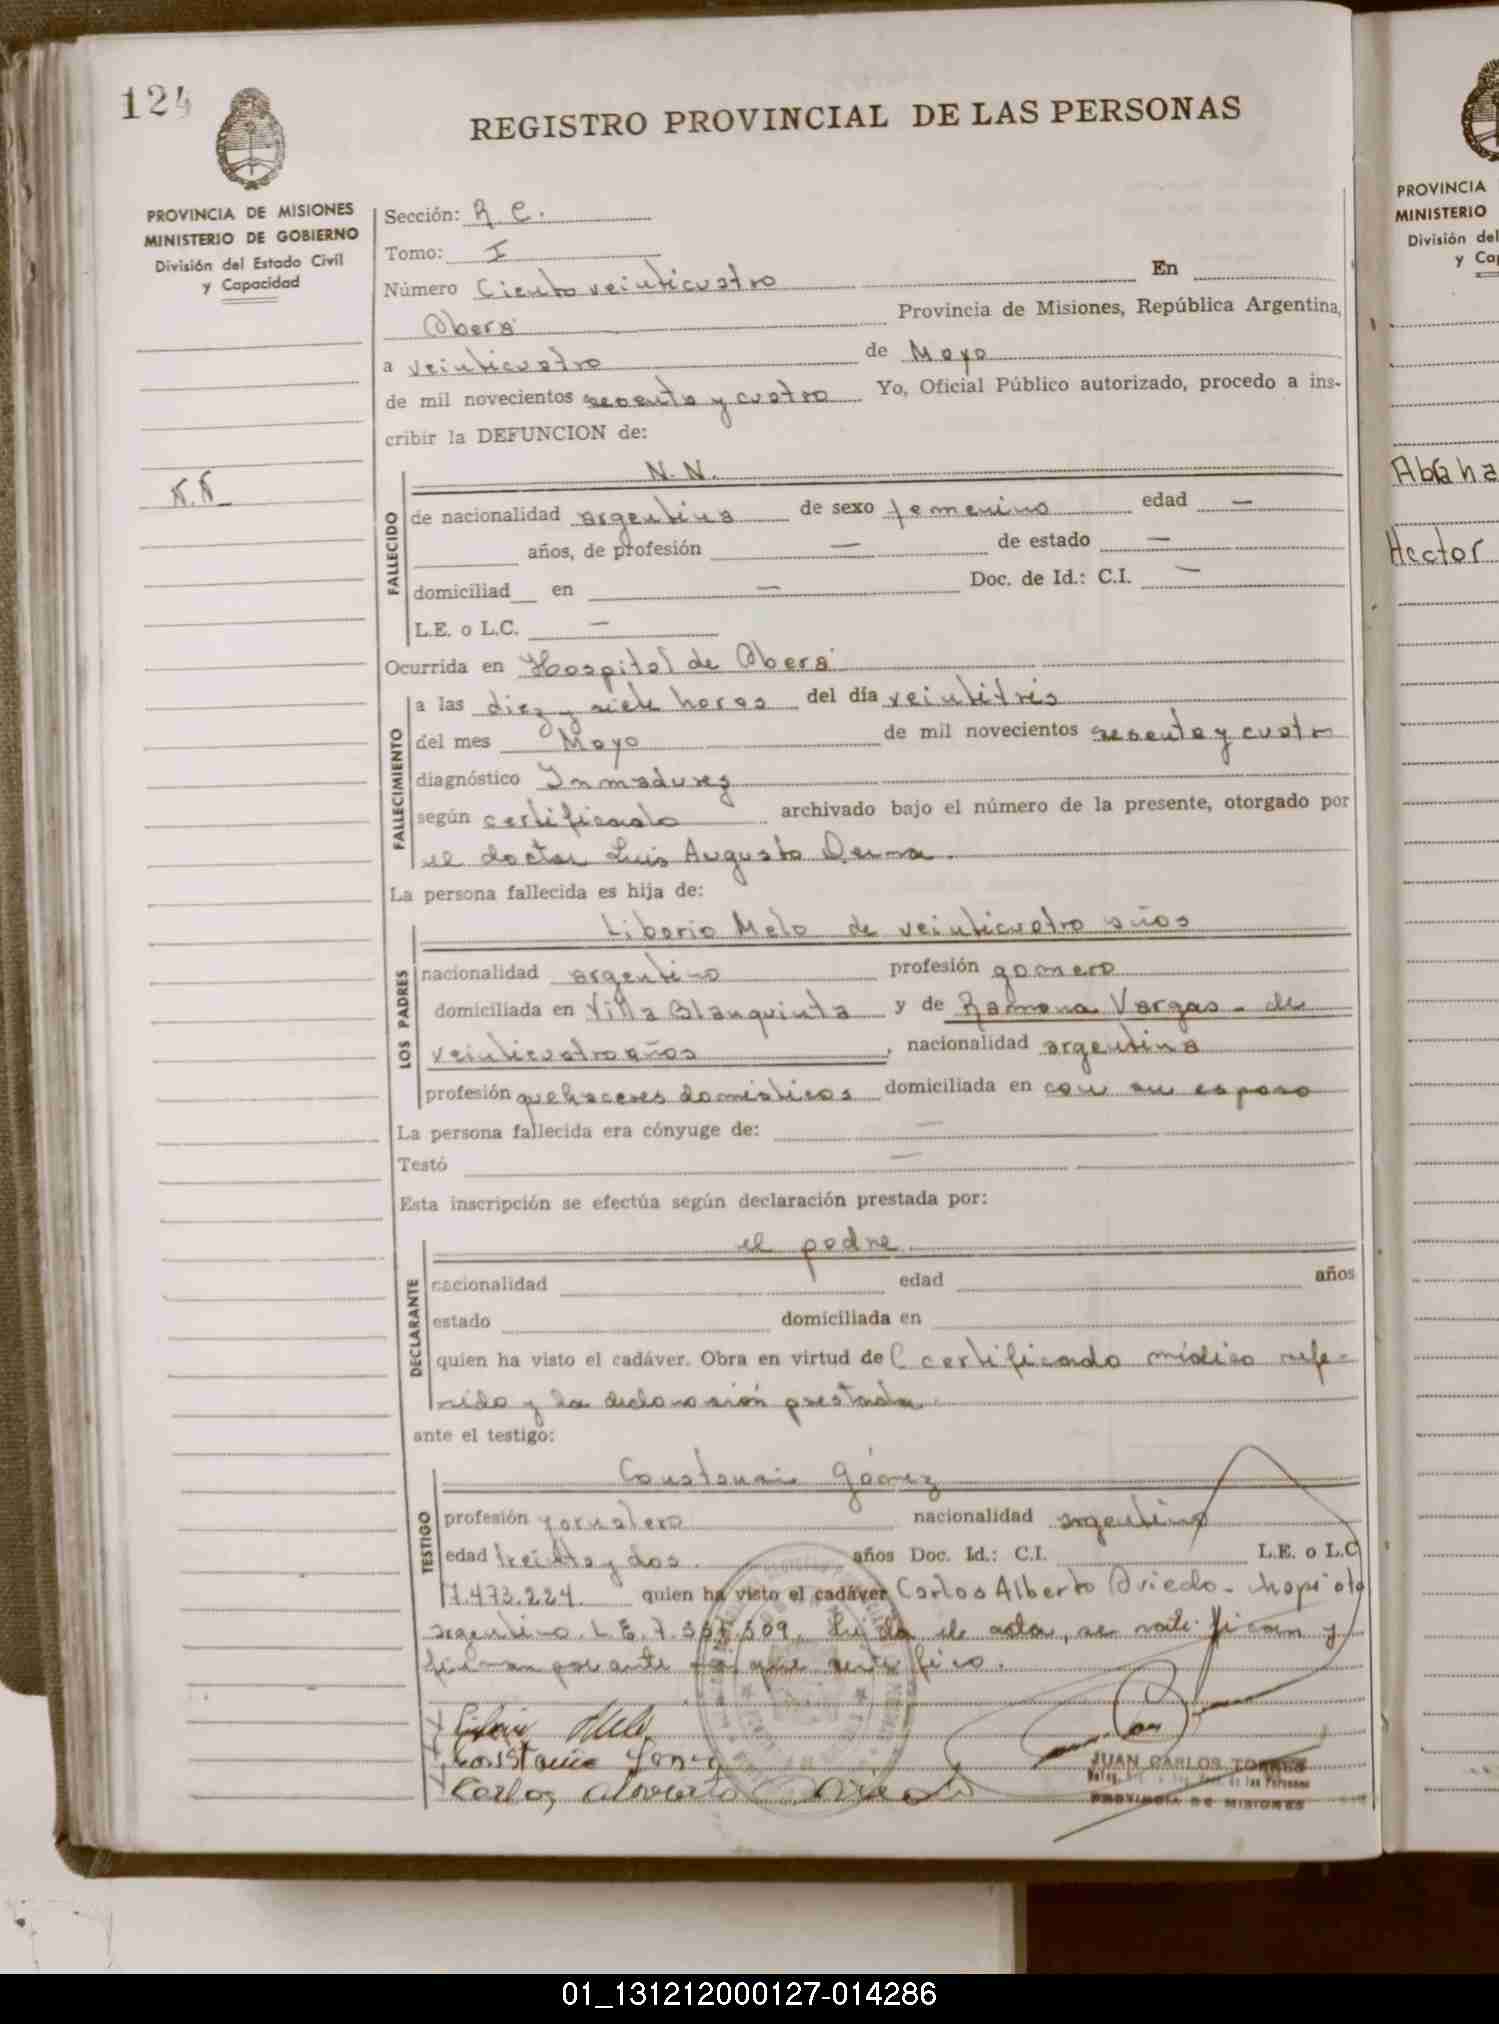 124
REGISTRO PROVINCIAL DE LAS PERSONAS
PROVINCIA DE MISIONES
MINISTERIO DE GOBIERNO
División del Estado Civil
y Capacidad
N.N
Sección: R C.
Tomo: I
Número Ciento veinticuatro En
Oberá Provincia de Misiones, República Argentina,
a veinticuatro de Mayo
de mil novecientos sesenta y cuatro Yo, Oficial Público autorizado, procedo a ins-
cribir la DEFUNCION de:
N.N.
FALLECIDO
de nacionalidad argentina de sexo femenino edad —
años, de profesión — de estado —
domiciliad en — Doc. de Id.: C.I. —
L.E. o L.C. —
Ocurrida en Hospital de Oberá
FALLECIMIENTO
a las diez y siete horas del día veintitrés
del mes Mayo de mil novecientos sesenta y cuatro
diagnóstico Inmadurez
según certificado archivado bajo el número de la presente, otorgado por
el doctor Luis Augusto
La persona fallecida es hija de:
LOS PADRES
Liborio Melo de veinticuatro años
nacionalidad argentino profesión gomero
domiciliada en Villa Blanquinta y de Ramona Vargas - de
veinticuatro años, nacionalidad argentina
profesión quehaceres domésticos domiciliada en con su esposo
La persona fallecida era cónyuge de: —
Testó —
Esta inscripción se efectúa según declaración prestada por:
DECLARANTE
el padre.
nacionalidad edad años
estado domiciliada en
quien ha visto el cadáver. Obra en virtud del certificado médico refe-
rido y la declaración prestada
ante el testigo:
TESTIGO
Constancio Gómez
profesión jornalero nacionalidad argentino
edad treinta y dos. años Doc. Id.: C.I. L.E. o L.C
7.473.224. quien ha visto el cadáver Carlos Alberto Oviedo -
argentino. L.E. Leída el acta, se ratifican y
firman por ante mí que certifico.
Liborio Melo
Constancio Gomez
Carlos Alberto Oviedo
JUAN CARLOS TORRES
PROVINCIA DE MISIONES
PROVINCIA
MINISTERIO
División del
y Ca
Abraha
Hector
01_131212000127-014286